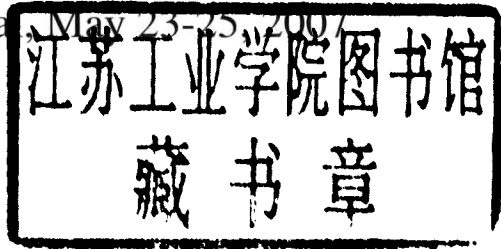 May 23-25, 2007
江苏工业学院图书馆
藏书章